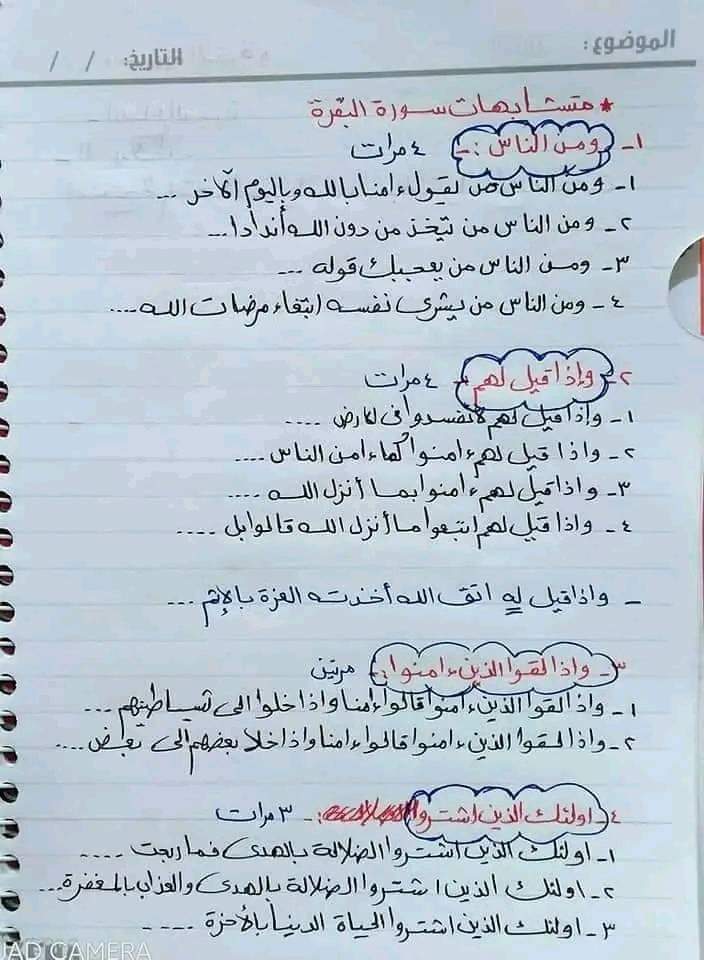 الموضوع:
التاريخ: / /
* متشابهات سورة البقرة
١- ومن الناس :- ٤ مرات
١- ومن الناس من يقول ءامنا بالله وباليوم الآخر ...
٢- ومن الناس من يتخذ من دون الله أندادا...
٣- ومن الناس من يعجبك قوله ...
٤- ومن الناس من يشرى نفسه ابتغاء مرضات الله ....
٢- وإذا قيل لهم - ٤ مرات
١- واذا قيل لهم لا تفسدوا فى الارض ....
٢- واذا قيل لهم ءامنوا كما ءامن الناس ....
٣- واذا قيل لهم ءامنوا بما أنزل الله ....
٤- واذا قيل لهم اتبعوا ما أنزل الله قالوا بل ....
- واذا قيل له اتق الله أخذته العزة بالإثم ...
٣- واذا لقوا الذين ءامنوا :- مرتين
١- واذا لقوا الذين ءامنوا قالوا ءامنا واذا خلوا الى شياطينهم ...
٢- واذا لقوا الذين ءامنوا قالوا ءامنا واذا خلا بعضهم الى بعض ....
٤- اولئك الذين اشتروا :- ٣ مرات
١- اولئك الذين اشتروا الضلالة بالهدى فما ربحت ....
٢- اولئك الذين اشتروا الضلالة بالهدى والعذاب بالمغفرة...
٣- اولئك الذين اشتروا الحياة الدنيا بالأخرة ....
UAD CAMERA